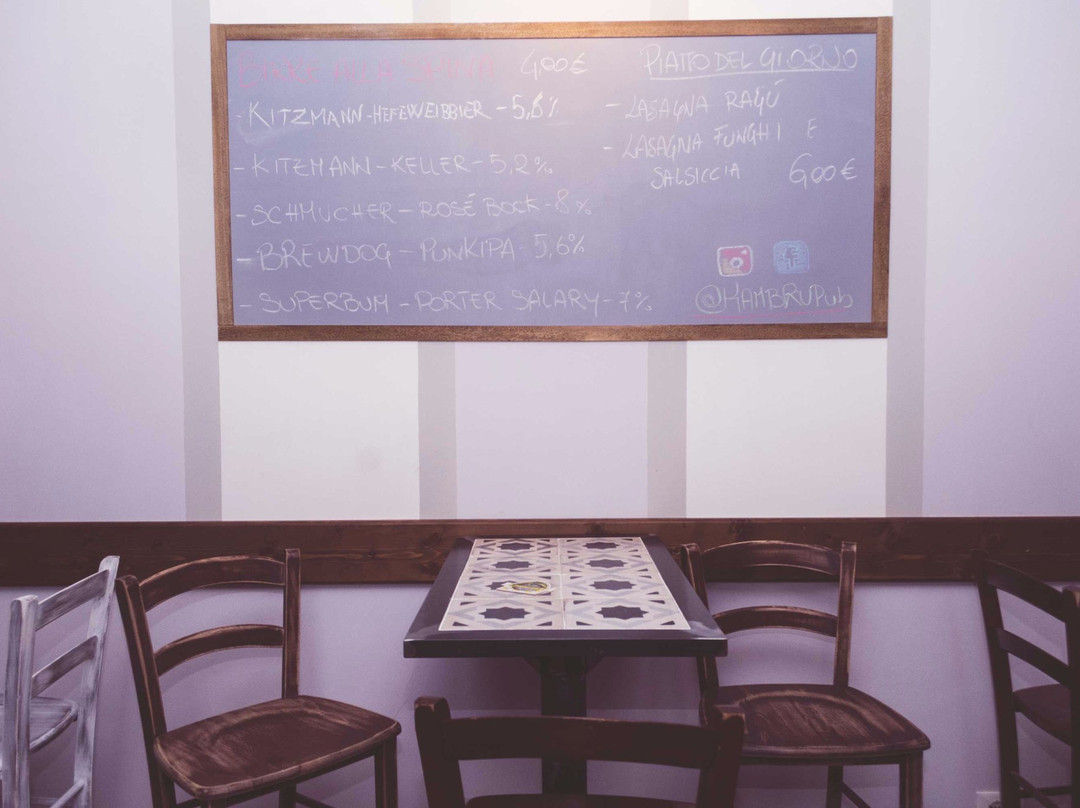 BIRRE ALLA SPINA 4,00€
- KITZMANN-HEFEWEIBBIER - 5,6%
- KITZMANN - KELLER - 5,2%
- SCHMUCHER - ROSÉ BOCK - 8%
- BREWDOG - PUNKIPA - 5,6%
- SUPERBUM - PORTER SALARY - 7%
PIATTO DEL GIORNO
- LASAGNA RAGÚ
- LASAGNA FUNGHI E
SALSICCIA 6,00€
@KAMBRUPub